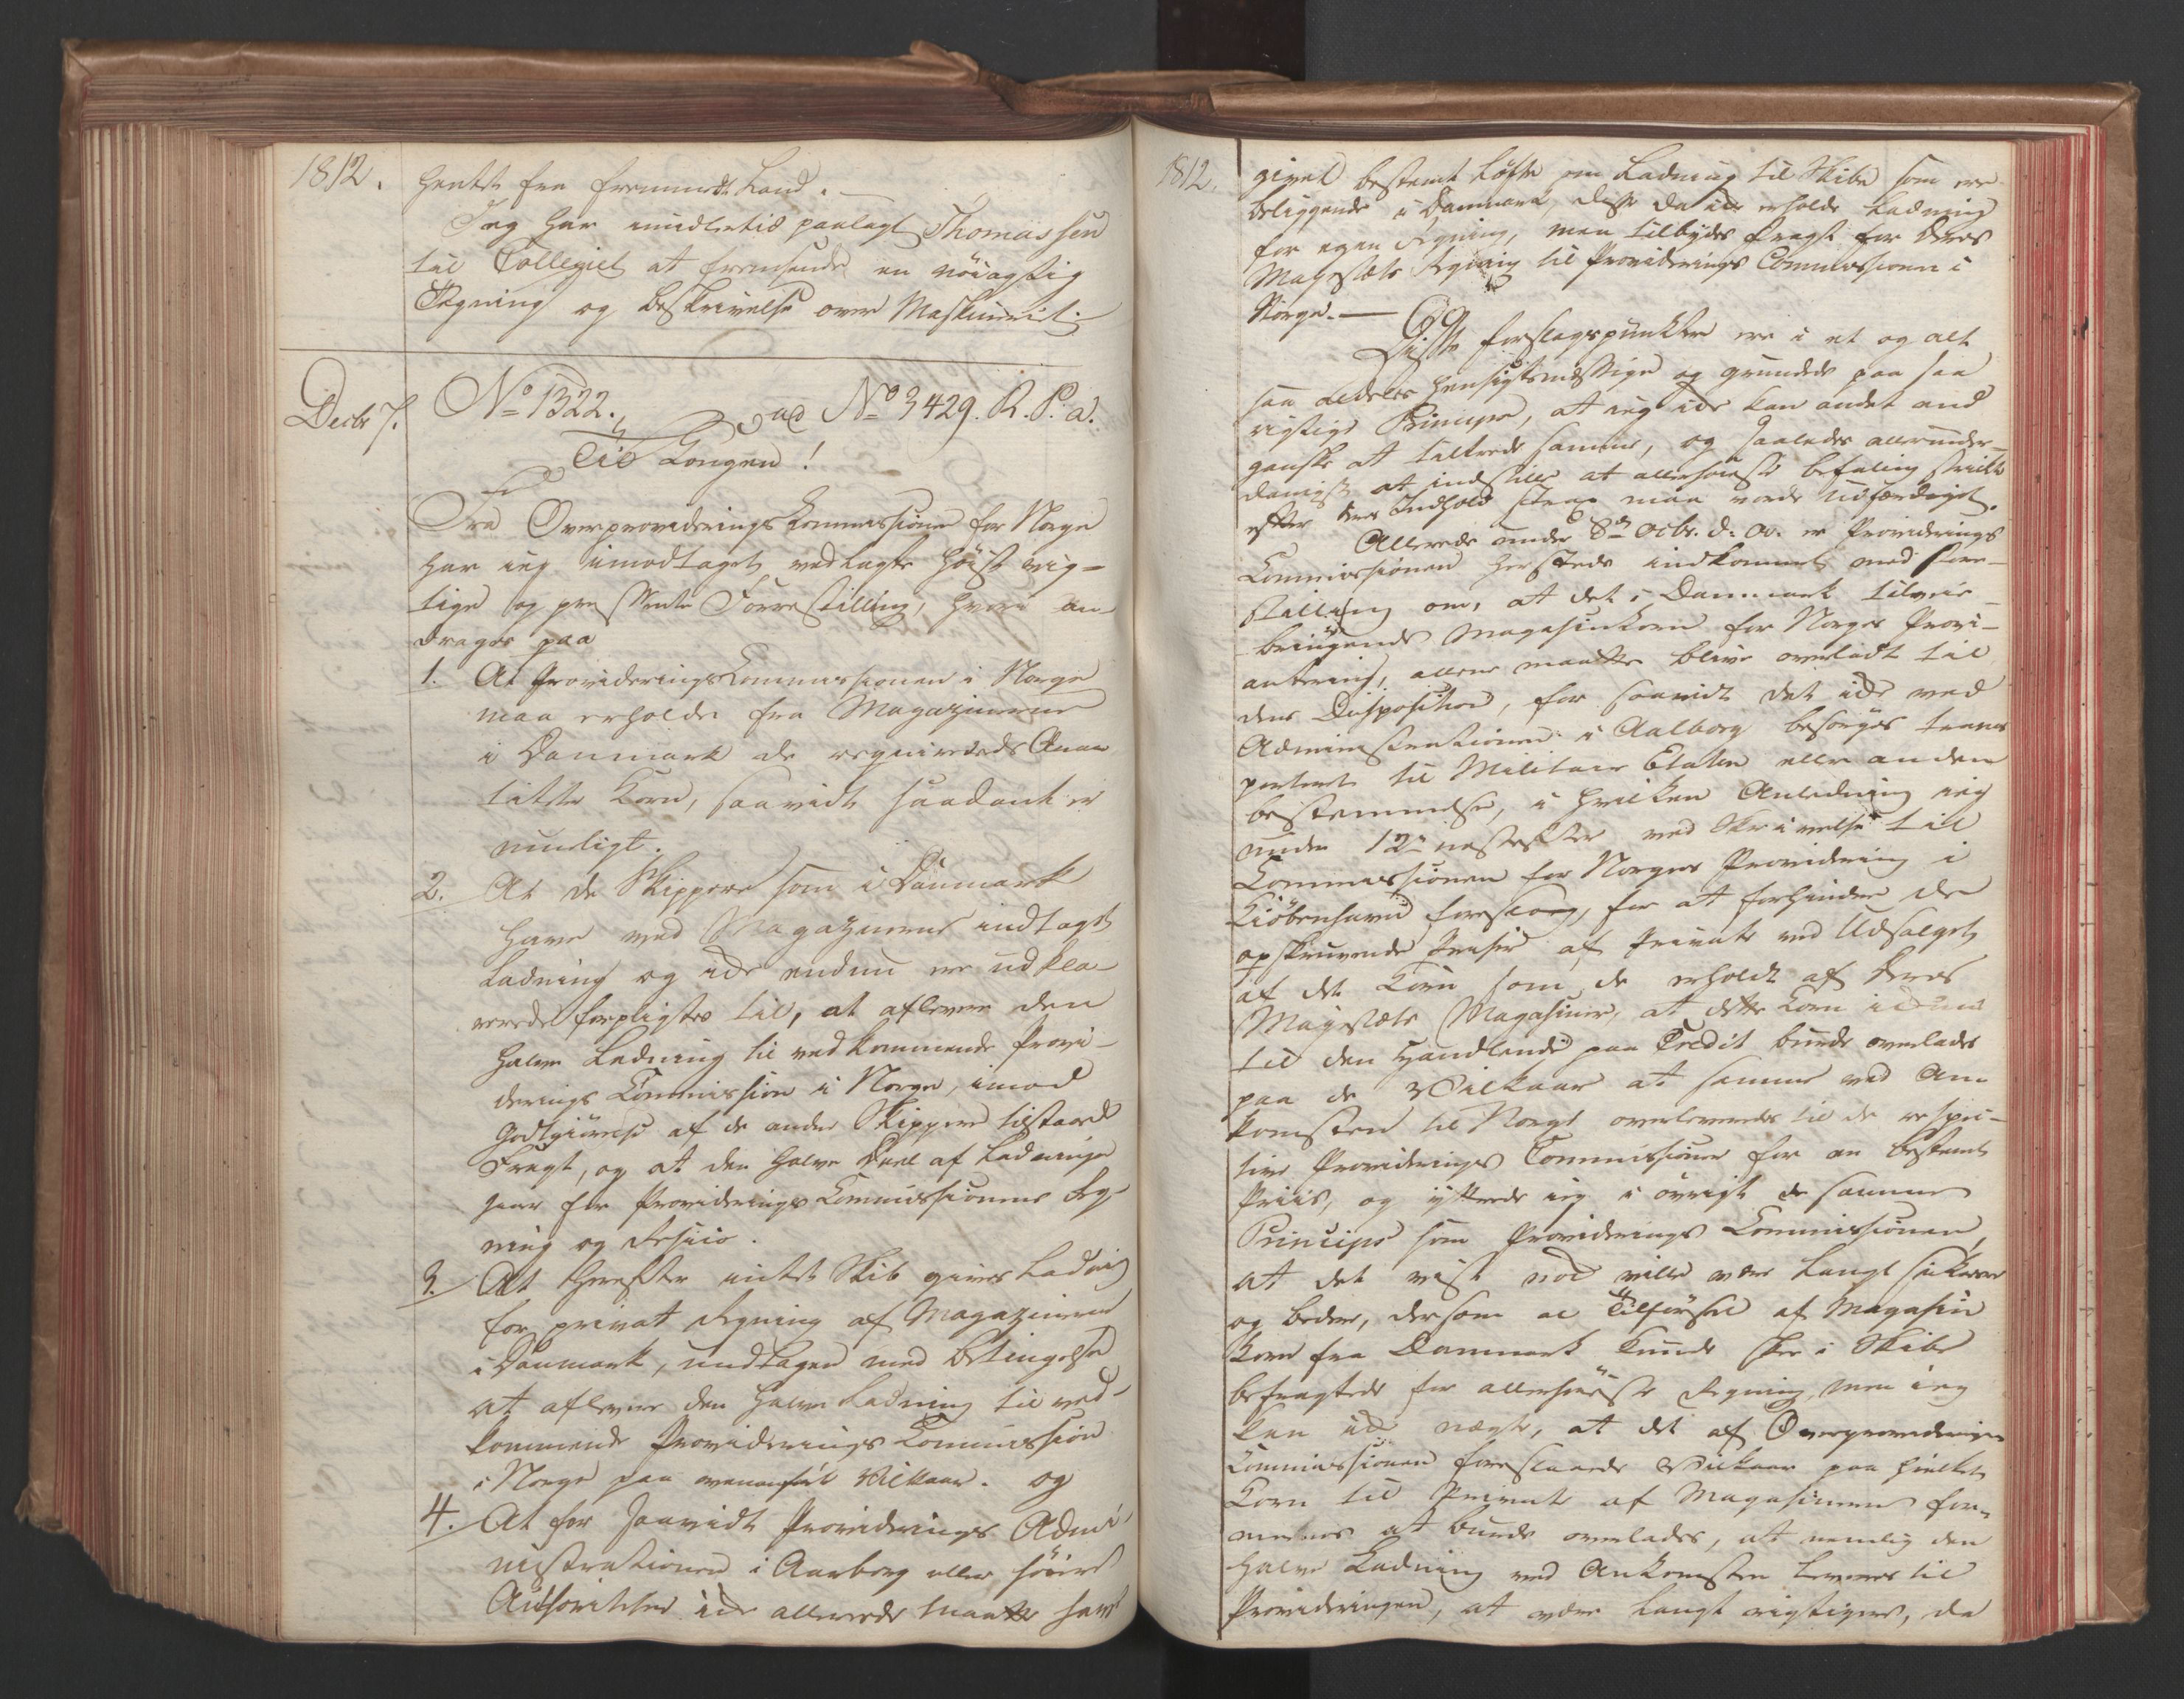 1812.
hentet fra fremmede Land. —
Jeg har imidlertid paalagt Thomassen
til Collegiet at fremsende en nöiagtig
Tegning og Beskrivelse over Maskineriet.
Decbr 7.
No 1322. ad No 3429. R. P. a.
Til Kongen!
Fra Overprovideringskommissionen for Norge
har jeg imodtaget vedlagte höist vig-
tige og pressente Forestilling, hvori an-
drages paa
1. At Provideringscommissionen i Norge
maa erholde fra Magazinerne
i Danmark de reqvirerede Quan
titeter Korn, saavidt saadant er
mueligt.
2. At de Skippere som i Danmark
have ved Magazinerne indtaget
Ladning og ikke endnu ere udkla-
rerede forpligtes til, at aflevere den
halve Ladning til vedkommende Provi-
derings Commission i Norge, imod
Godtgiörelse af de andre Skippere tilstaaede
Fragt, og at den halve Deel af Ladningen
gaaer for Provideringscommissionens Reg-
ning og Risico.
3. At herefter intet Skib gives Ladning
for privat Regning af Magazinerne
i Danmark, undtagen med Betingelse
at aflevere den halve Ladning til ved-
kommende Provideringscommission
i Norge paa ovenanförte Vilkaar. og
4. At for saavidt Providerings Admi-
nistrationen i Aarborg eller höiere
Authoriteter ikke allerede maatte have
1812.
givet bestemt Löfte om Ladning til Skibe som ere
beliggende i Danmark, disse da ikke erholde Ladning
for egen Regning, men tilbydes Fragt for Deres
Majestæts Regning til Providerings Commissionen i
Norge. —
Disse Forslagspunkter ere i et og alt
saa aldeles hensigtsmæssige og grundede paa saa
rigtige Principer, at jeg ikke kan andet end
ganske at tiltræde samme, og saaledes allerunder-
danigst at indstille at allerhöieste Befaling strikte
efter Indhold strax maa vorde udfærdiget.
Allerede under 8de Octbr. d. A. er Providerings
Commissionen hersteds indkommet med Fore-
stilling om, at det i Danmark tilveie-
bringende Magasinkorn for Norges Provi-
antering, allene maatte blive overladt til
dens Disposition, for saavidt det ikke ved
Administrationen i Aalborg besörges trans
porteret til Militair Etaten eller anden
bestemmelse, i hvilken Anledning jeg
under 12te nestefter ved Skrivelse til
Commissionen for Norges Providering i
Kiöbenhavn foreslog, for at forhindre de
opskruvende Priser af Private ved Udsalget
af det Korn som de erholdt af Deres
Majestæts Magasiner, at dette Korn
til den Handlende paa Credit burde overlades
paa de Vilkaar at samme ved An
komsten til Norge overleveredes til de respec-
tive Providerings Commissioner for en bestemt
Priis, og yttrede jeg i övrigt de samme
Principer som Providerings Commissionen,
at det vist nok ville være langt sikkrere
og bedre, dersom al Tilförsel af Magasin
Korn fra Danmark kunde skee i Skibe
befragtede for allerhöieste Regning, men jeg
kan ikke nægte, at det af Overproviderings
Commissionen foreslaaede Vilkaar paa hvilket
Korn til Private af Magasinerne for-
menes at burde overlades, at nemlig den
halve Ladning ved Ankomsten leveres til
Provideringen, at være langt rigtigere, da